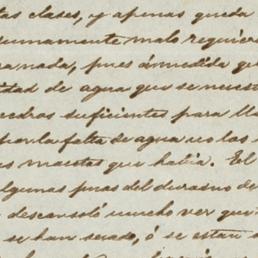 tas clases, y apenas queda
sumamente malo requiere
para nada, pues á medida que
tidad de agua que se necesit
piedras suficientes para lla
por la falta de agua no las
es muertes que habia. El
algunas pocas del durasno de
descansoló mucho ver que
se han secado, ó se estan s